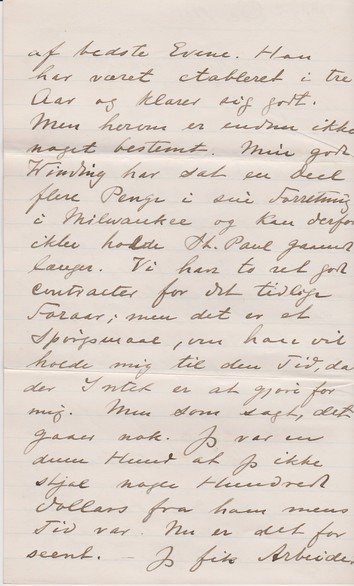 af bedste Evene. Han
har været etableret i tre
Aar og klarer sig godt.
Men herom er endnu ikke
noget bestemt. Min gode
Winding har sat en deel
flere Penge i sin Forretning
i Milwaukee og kan derfor
ikke holde St. Paul gaaende
længer. Vi har to ret gode
contracter for det tidlige
Foraar; men det er et
Spørgsmaal, om han vil
holde mig til den Tid, da
der Intet er at gjøre for
mig. Men som sagt, det
gaaer nok. Jeg var en
dum Hund at Jeg ikke
stjal nogle Hundred
Dollars fra ham mens
Tid var. Nu er det for
seent. Jeg fik Arbeider